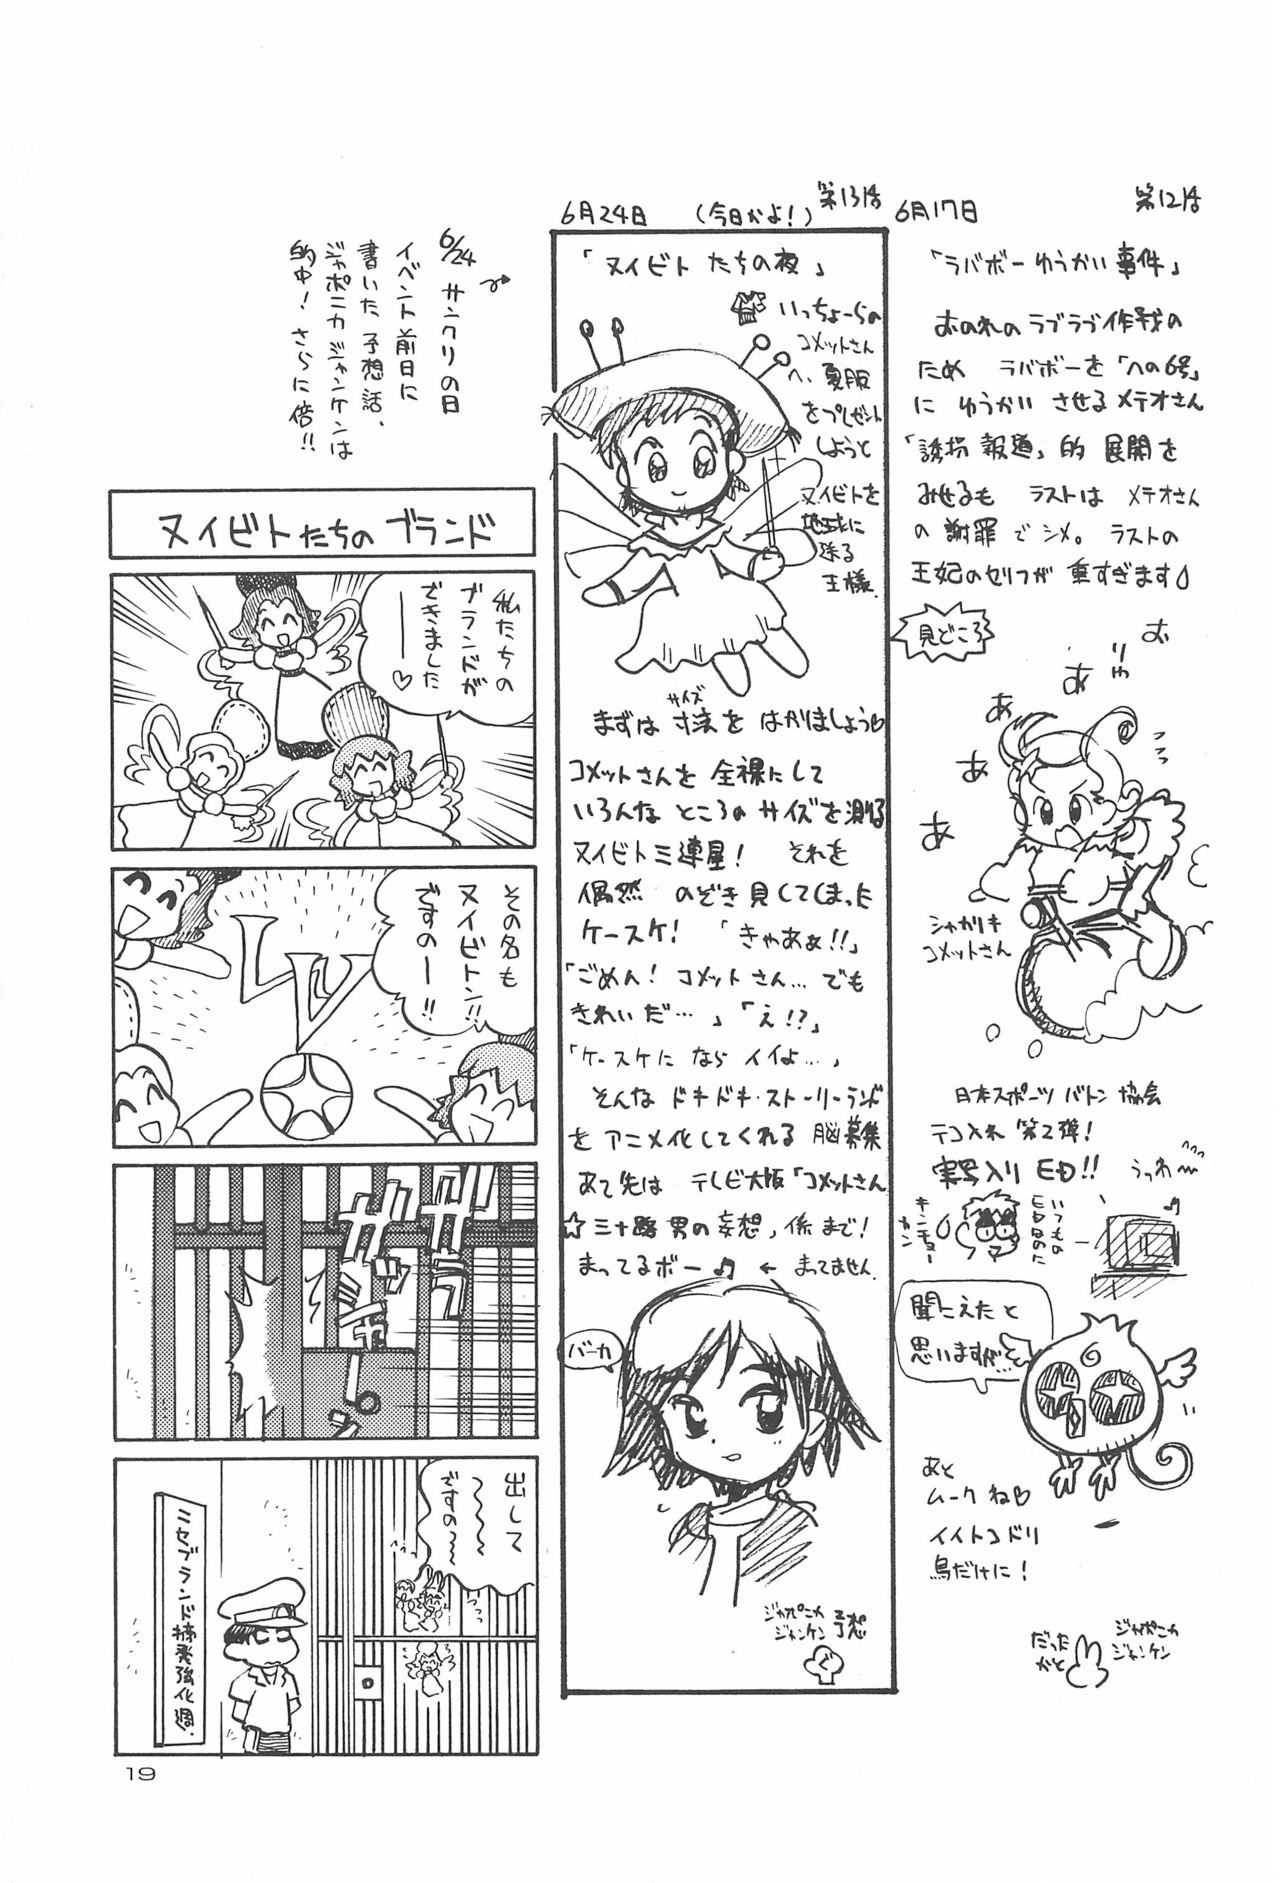 第12話
6月17日
「ラバボーゆうかい事件」
おのれのラブラブ作戦の
ため ラバボーを「への6号」
に ゆうかい させるメテオさん
「誘拐報道」的 展開を
みせるも ラストは メテオさん
の謝罪でシメ。ラストの
王妃のセリフが 重すぎます
見どころ
お
りゃ
あ
あ
あ
あ
シャカリキ
コメットさん
日本スポーツ バトン 協会
テコ入れ 第2弾!
実写入り ED!!
うっわ〜
いつもの
EDなのに
キンチョー
カン
聞こえたと
思いますが…
あと
ムークね♡
イイトコドリ
鳥だけに!
ジャポニカ
ジャンケン
だった
かと
第13話
6月24日 (今日かよ!)
「ヌイビトたちの夜」
いっちょーらの
コメットさん
へ、夏服
をプレゼント
しようと
ヌイビトを
地球に
送る
王様
まずは寸法をはかりましょう♡
サイズ
コメットさんを 全裸にして
いろんな ところの サイズを測る
ヌイビト三連星! それを
偶然 のぞき見してしまった
ケースケ! 「きゃあぁ!!」
「ごめん! コメットさん… でも
きれいだ…」「え!?」
「ケースケに なら イイよ…」
そんな ドキドキ・ストーリーランド
を アニメ化してくれる 脳募集
あて先は テレビ大阪「コメットさん
☆三十路男の妄想」係まで!
まってるボー♪ ← まってません
バーカ
ジャポニカ
ジャンケン
予想
6/24 サンクリの日
イベント前日に
書いた予想話、
ジャポニカジャンケンは
的中! さらに倍!!
ヌイビトたちのブランド
私たちの
ブランドが
できました
――♡
その名も
ヌイビトン!!
ですのー!!
LV
ガラ
ガッシャン
出して
〜〜〜
ですの〜
ニセブランド摘発強化週
19